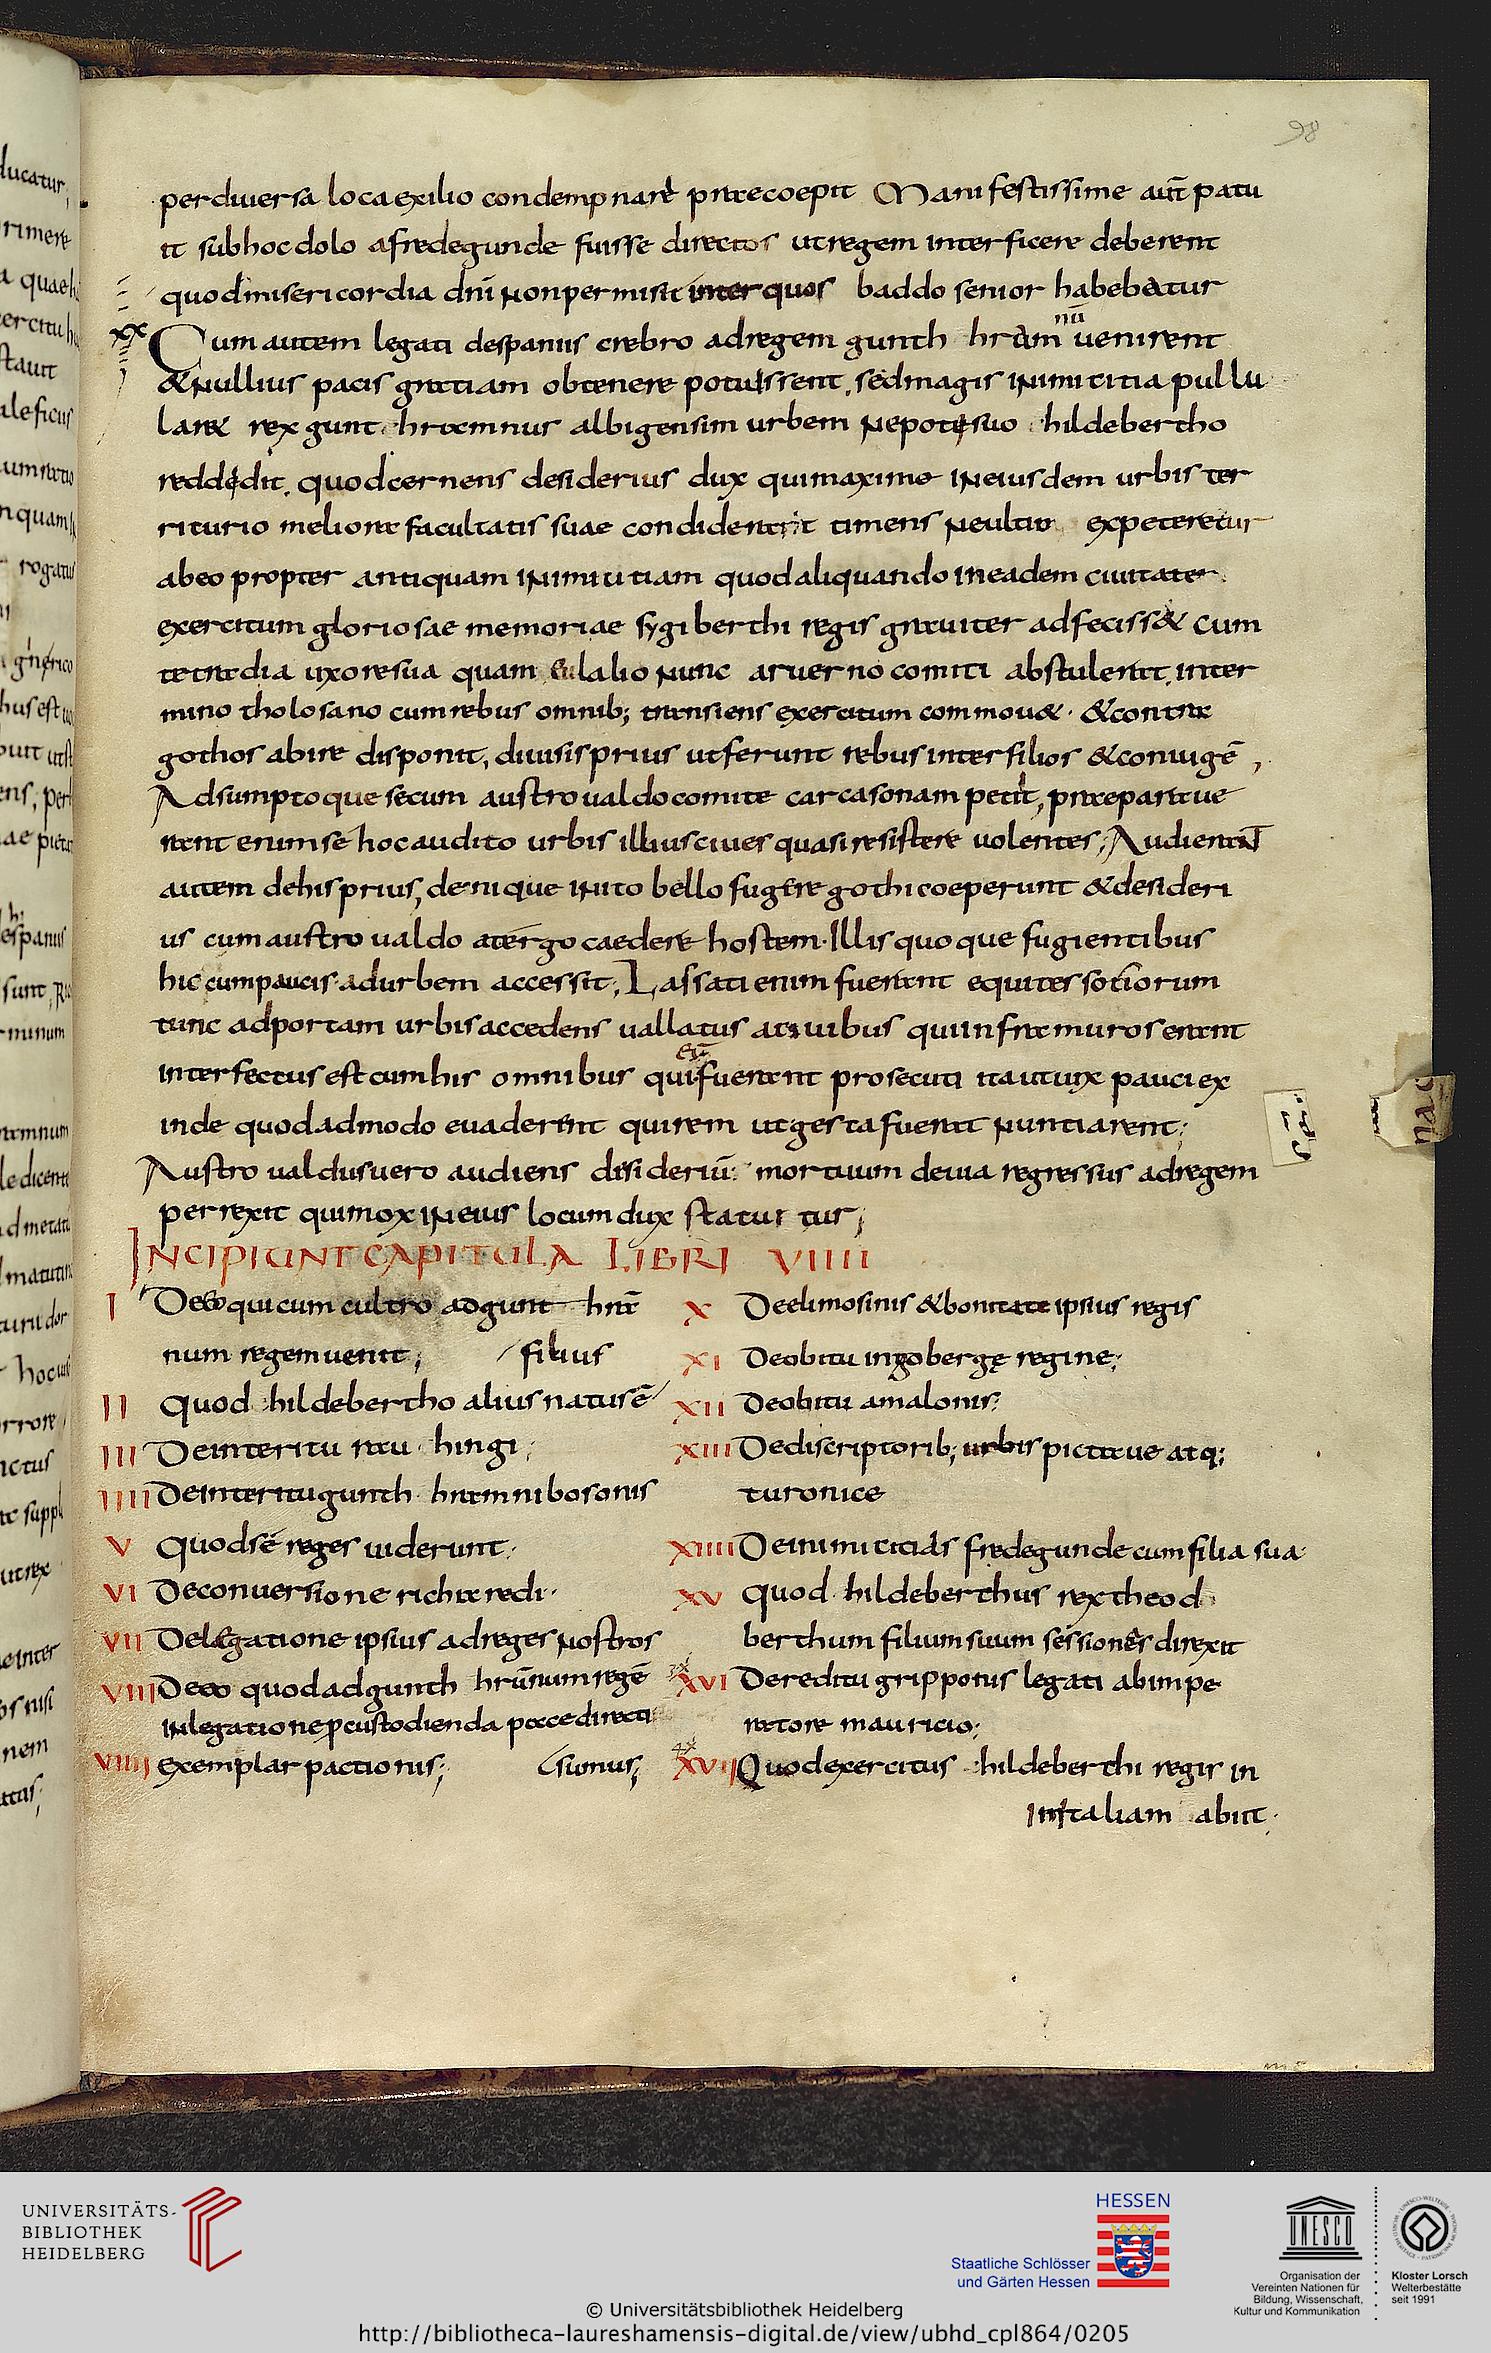 98
perdiuersa loca exilio condempnare praecoepit Manifestissime aut̄ patu
it subhoc dolo afredegunde fuisse directos utregem interficere deberent
quod misericordia dn̄i nonpermisit inter quos baddo senior habebatur
xx Cum autem legati despaniis crebro adregem gunth hramnū uenirent
& nullius pacis gratiam obtenere potuissent, sedmagis inimicitia pullu
lar& rex gunt hramnus albigensim urbem nepoti suo hildebertho
reddedit. quod cernens desiderius dux quimaxime ineiusdem urbis ter
riturio meliora facultatis suae condiderat timens ne ultio expeteretur
abeo propter antiquam inimicitiam quod aliquando ineadem ciuitate
exercitum gloriosae memoriae sygiberthi regis grauiter adfeciss& cum
tetradia uxore sua quam eulalio nunc aruerno comiti abstulerat, inter
mino tholosano cumrebus omnib; transiens exercitum commou& · & contra
gothos abire disponit, diuisis prius utferunt rebus interfilios & coniugē,
Adsumptoque secum austroualdo comite carcasonam petiit, praeparaue
rant enim sē hoc audito urbis illius ciues quasi resistere uolentes; Audierant
autem dehis prius, denique inito bello fugere gothi coeperunt & desideri
us cum austroualdo atergo caedere hostem. Illis quoque fugientibus
hic cum paucis adurbem accessit; Lassati enim fuerant equites sociorum
tunc adportam urbis accedens uallatus a ciuibus qui infra muros erant
interfectus est cum his omnibus qui eū fuerant prosecuti ita ut uix pauci ex
inde quodadmodo euaderent qui rem utgesta fuerat nuntiarent;
Austroualdus uero audiens disideriū mortuum deuia regressus adregem
perrexit qui mox ineius locum dux statuitur;
INCIPIUNT CAPITULA LIBRI VIIII
I Deeo qui cum cultro ad gunt hra
num regem uenit; filius
II Quod hildebertho alius natus ē
III De interitu rau hingi;
IIII De interitu gunth hramni bosonis
V Quod sē reges uiderunt;
VI De conuersione richaredi
VII De legatione ipsius ad reges nostros
VIII Deeo quod ad gunth hrānum regē
in legatione p custodienda pace directi
VIIII Exemplar pactionis; sumus;
X De elimosinis & bonitate ipsius regis
XI De obitu ingobergę regine;
XII De obitu amalonis;
XIII De discriptorib; urbis pictaue atq;
turonice
XIIII De inimicitiis fredegunde cum filia sua
XV Quod hildeberthus rex theod
berthum filium suum sessionēs direxit
XVI De reditu gripponis legati ab impe
ratore mauricio;
XVII Quod exercitus hildeberthi regis in
in italiam abiit
UNIVERSITÄTS-
BIBLIOTHEK
HEIDELBERG
HESSEN
Staatliche Schlösser
und Gärten Hessen
UNESCO
Organisation der
Vereinten Nationen für
Bildung, Wissenschaft,
Kultur und Kommunikation
Kloster Lorsch
Welterbestätte
seit 1991
© Universitätsbibliothek Heidelberg
http://bibliotheca-laureshamensis-digital.de/view/ubhd_cpl864/0205